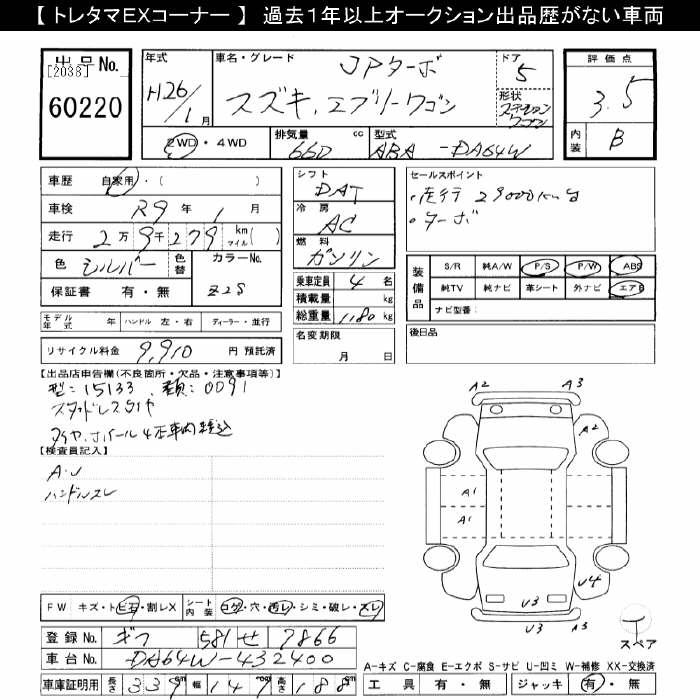 【 トレタマEXコーナー 】 過去１年以上オークション出品歴がない車両
出品No.
[2038]
60220
年式
H26/1月
車名・グレード
JPターボ
スズキ、エブリーワゴン
ドア
5
形状
ステーションワゴン
評価点
3.5
内装
B
2WD・4WD
排気量 660 cc
型式 ABA -DA64W
車歴 自家用・( )
車検 R9 年 1 月
走行 2 万 9 千 279 km マイル( )
色 シルバー 色替 カラーNo.
保証書 有・無 Z2S
モデル年式 年 ハンドル 左・右 ディーラー・並行
リサイクル料金 9,910 円 預託済
シフト
DAT
冷房
AC
燃料
ガソリン
乗車定員 4 名
積載量 kg
総重量 1180 kg
名変期限
月 日
セールスポイント
・走行29000km台
・ターボ
装備品
S/R 純A/W P/S P/W ABS
純TV 純ナビ 革シート 外ナビ エアB
ナビ型番:
後日品
【出品店申告欄(不良箇所・欠品・注意事項等)】
型:15133 類:0091
スタッドレスタイヤ
タイヤ.ホイール4本車内積込
【検査員記入】
A・U
ハンドルスレ
FW キズ・トビ石・割レX シート内装 コゲ・穴・汚レ・シミ・破レ・スレ
登録No. ギフ 581 せ 7866
車台No. DA64W-432400
車庫証明用 長さ 339 幅 147 高さ 188
A2 A3
A2
A1
A1
U4
U3 U3 A3
スペア
A-キズ C-腐食 E-エクボ S-サビ U-凹ミ W-補修 XX-交換済
工具 有・無 ジャッキ 有・無